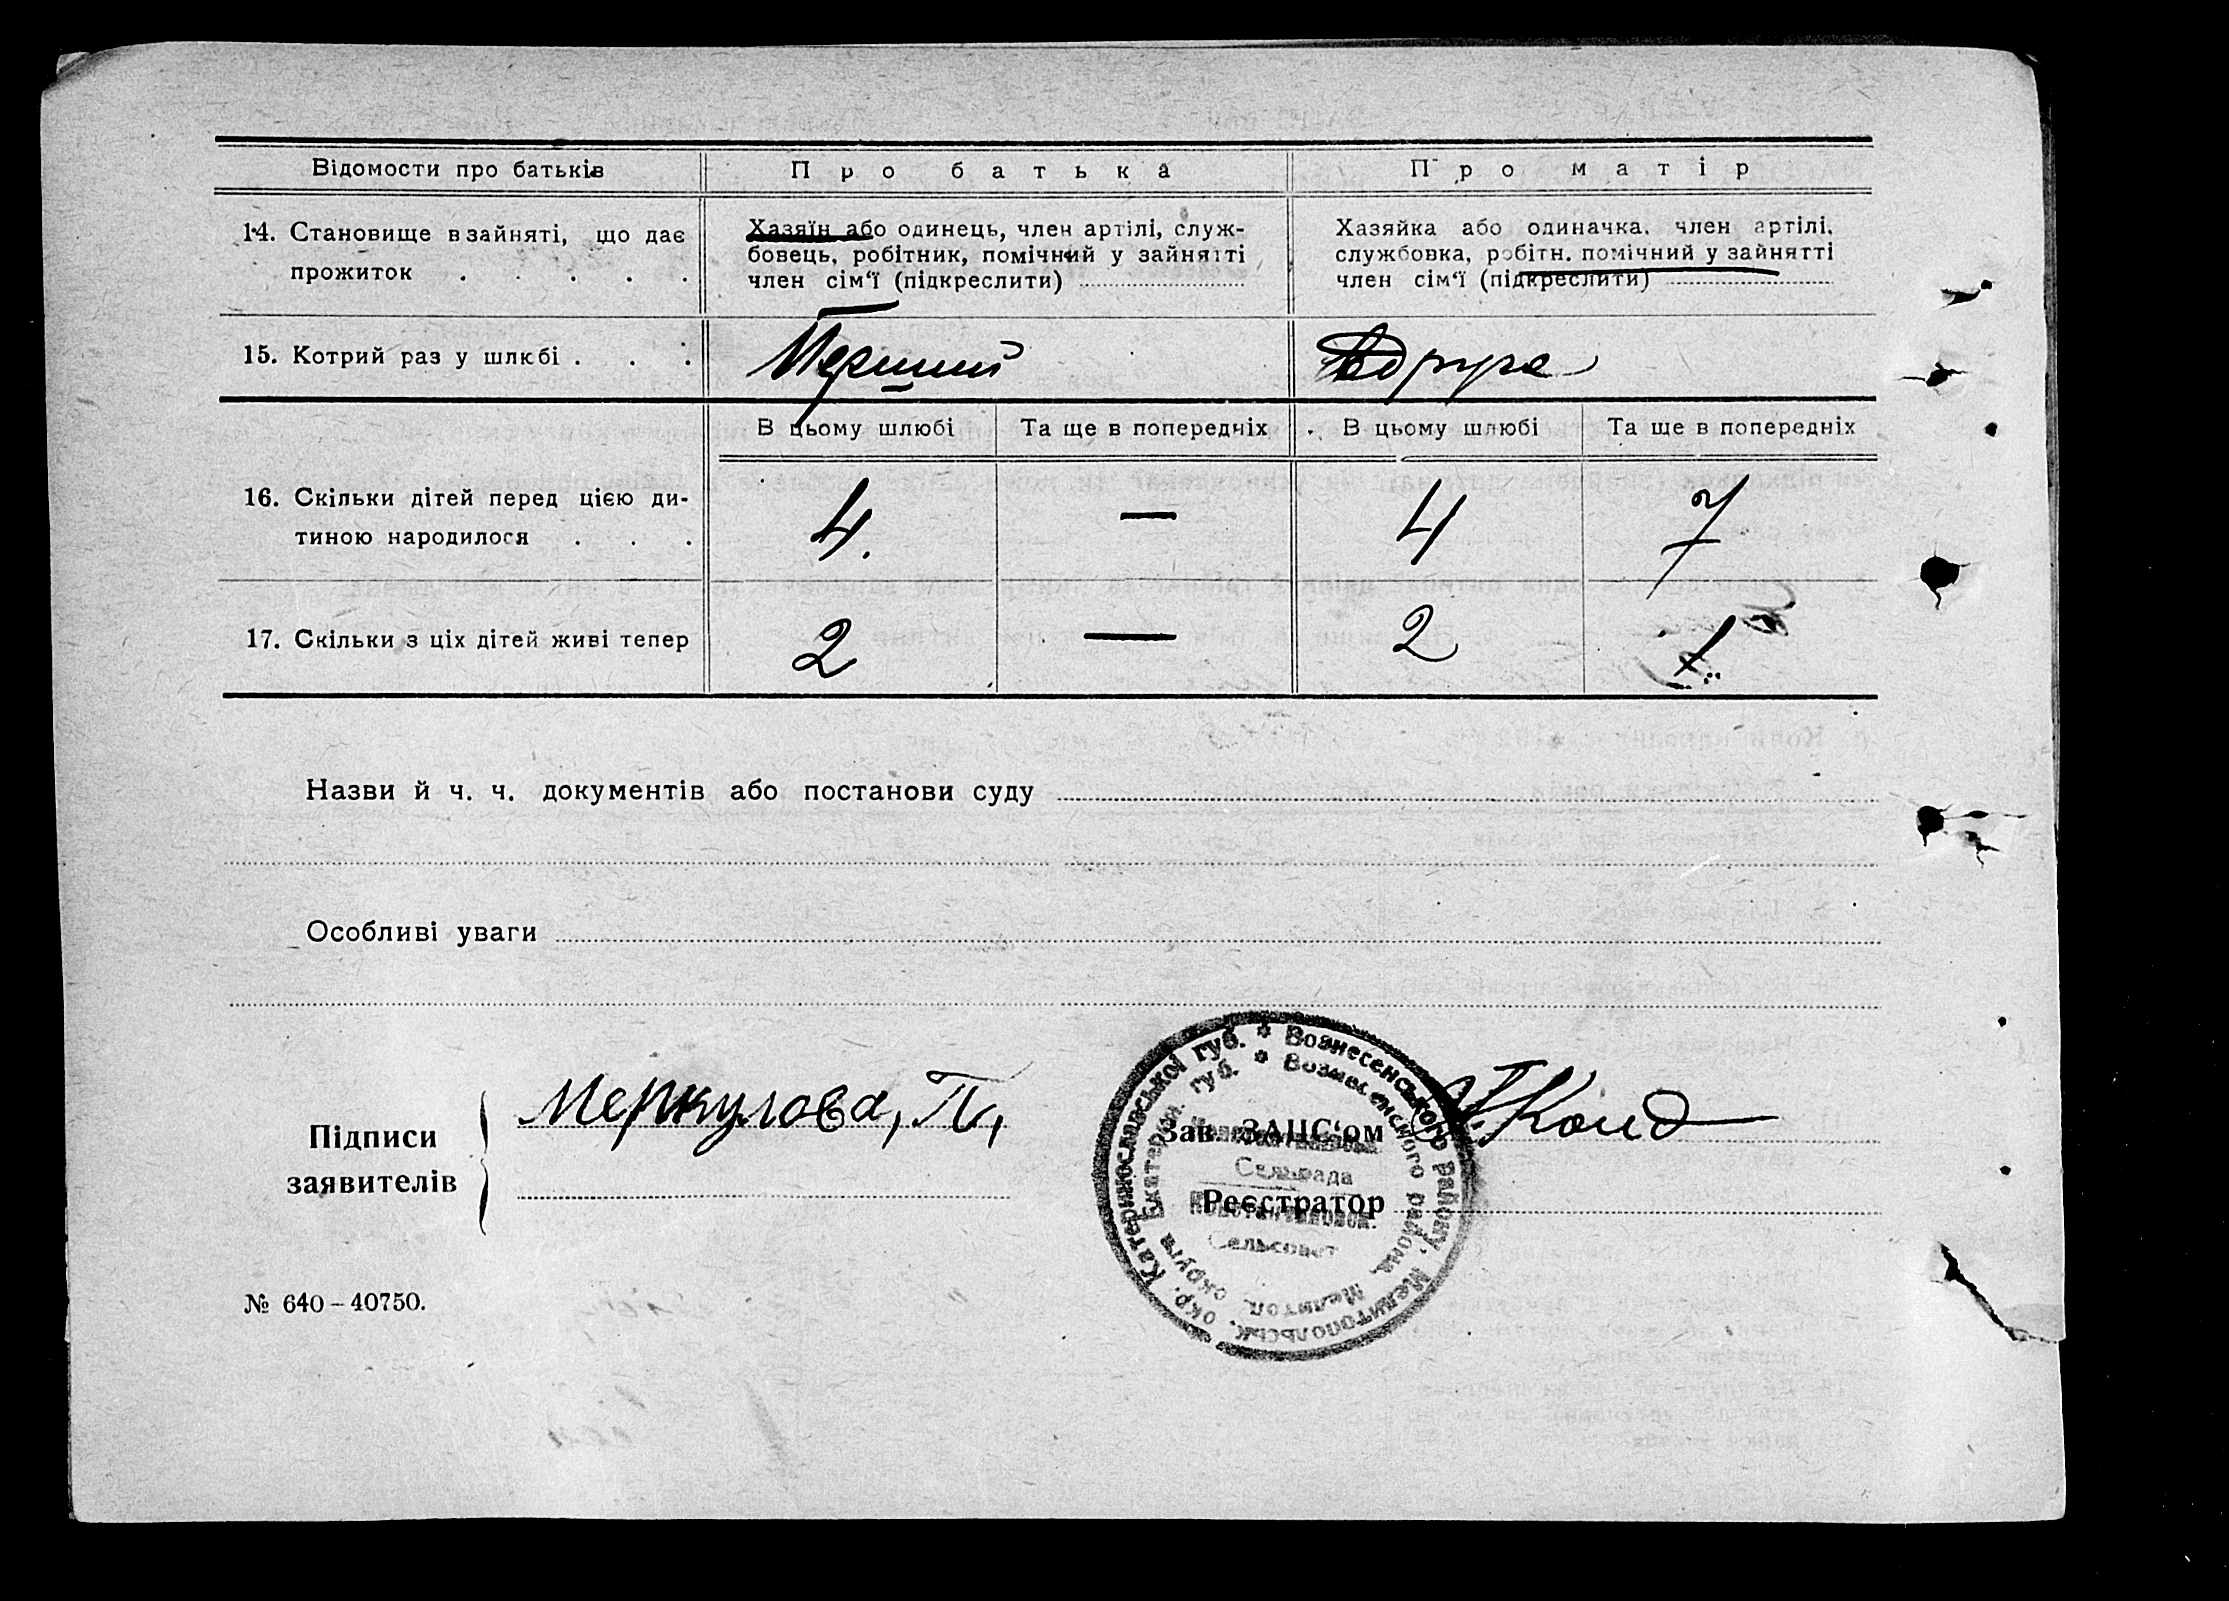 Відомости про батьків
Про батька
Про матір
14. Становище в зайняті, що дає
прожиток . . . . .
Хазяїн або одинець, член артілі, служ-
бовець, робітник, помічний у зайнятті
член сім'ї (підкреслити)
Хазяйка або одиначка, член артілі,
службовка, робітн. помічний у зайнятті
член сім'ї (підкреслити)
15. Котрий раз у шлюбі . . .
Перший
друге
В цьому шлюбі
Та ще в попередніх
В цьому шлюбі
Та ще в попередніх
16. Скільки дітей перед цією ди-
тиною народилося . . .
4.
—
4
7
17. Скільки з ціх дітей живі тепер
2
—
2
1
Назви й ч. ч. документів або постанови суду
Особливі уваги
Підписи
заявителів
Меркулова, П,
Зав. ЗАЦС'ом
Реєстратор
окр. Катеринославської губ. * Вознесенського району, Мелитопольськ.
округа Екатерин. губ. * Вознесенского района, Мелитоп.
Сельрада
Сельсовет
№ 640–40750.